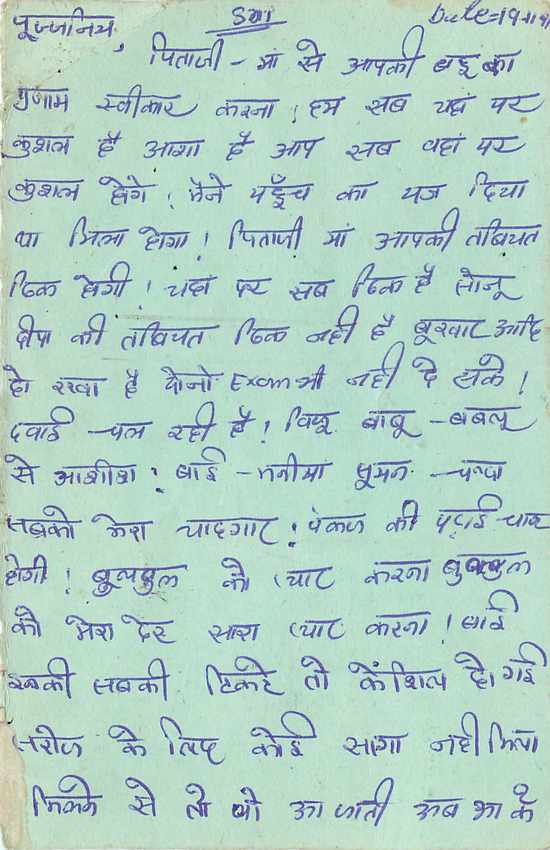 पूज्जनिय, ॐ Date=19-11-
पिताजी - मां से आपकी बहू का
प्रणाम स्वीकार करना! हम सब यहां पर
कुशल है आशा है आप सब वहां पर
कुशल होगे! मैंने पहुँच का पत्र दिया
था मिला होगा! पिताजी मां आपकी तबियत
ठिक होगी! यहां पर सब ठिक है सोनू
दीपा की तबियत ठिक नही है बूखार आदि
हो रखा है दोनो Exam भी नही दे सके!
दवाई चल रही है! विपू बाबू - बबलू
से आशीश! बाई - मनीमां सूमन - चम्पा
सबको मेरा यादगार! पंकज की पढाई चालू
होगी! बूलबुल को प्यार करना बुलबुल
को मेरा ढेर सारा प्यार करना! बाई
इनकी सबकी टिकटे तो कैंशिल हो गई
सरोज के लिए कोई सागा नही मिला
मिलने से तो वो आ जाती अब आ के